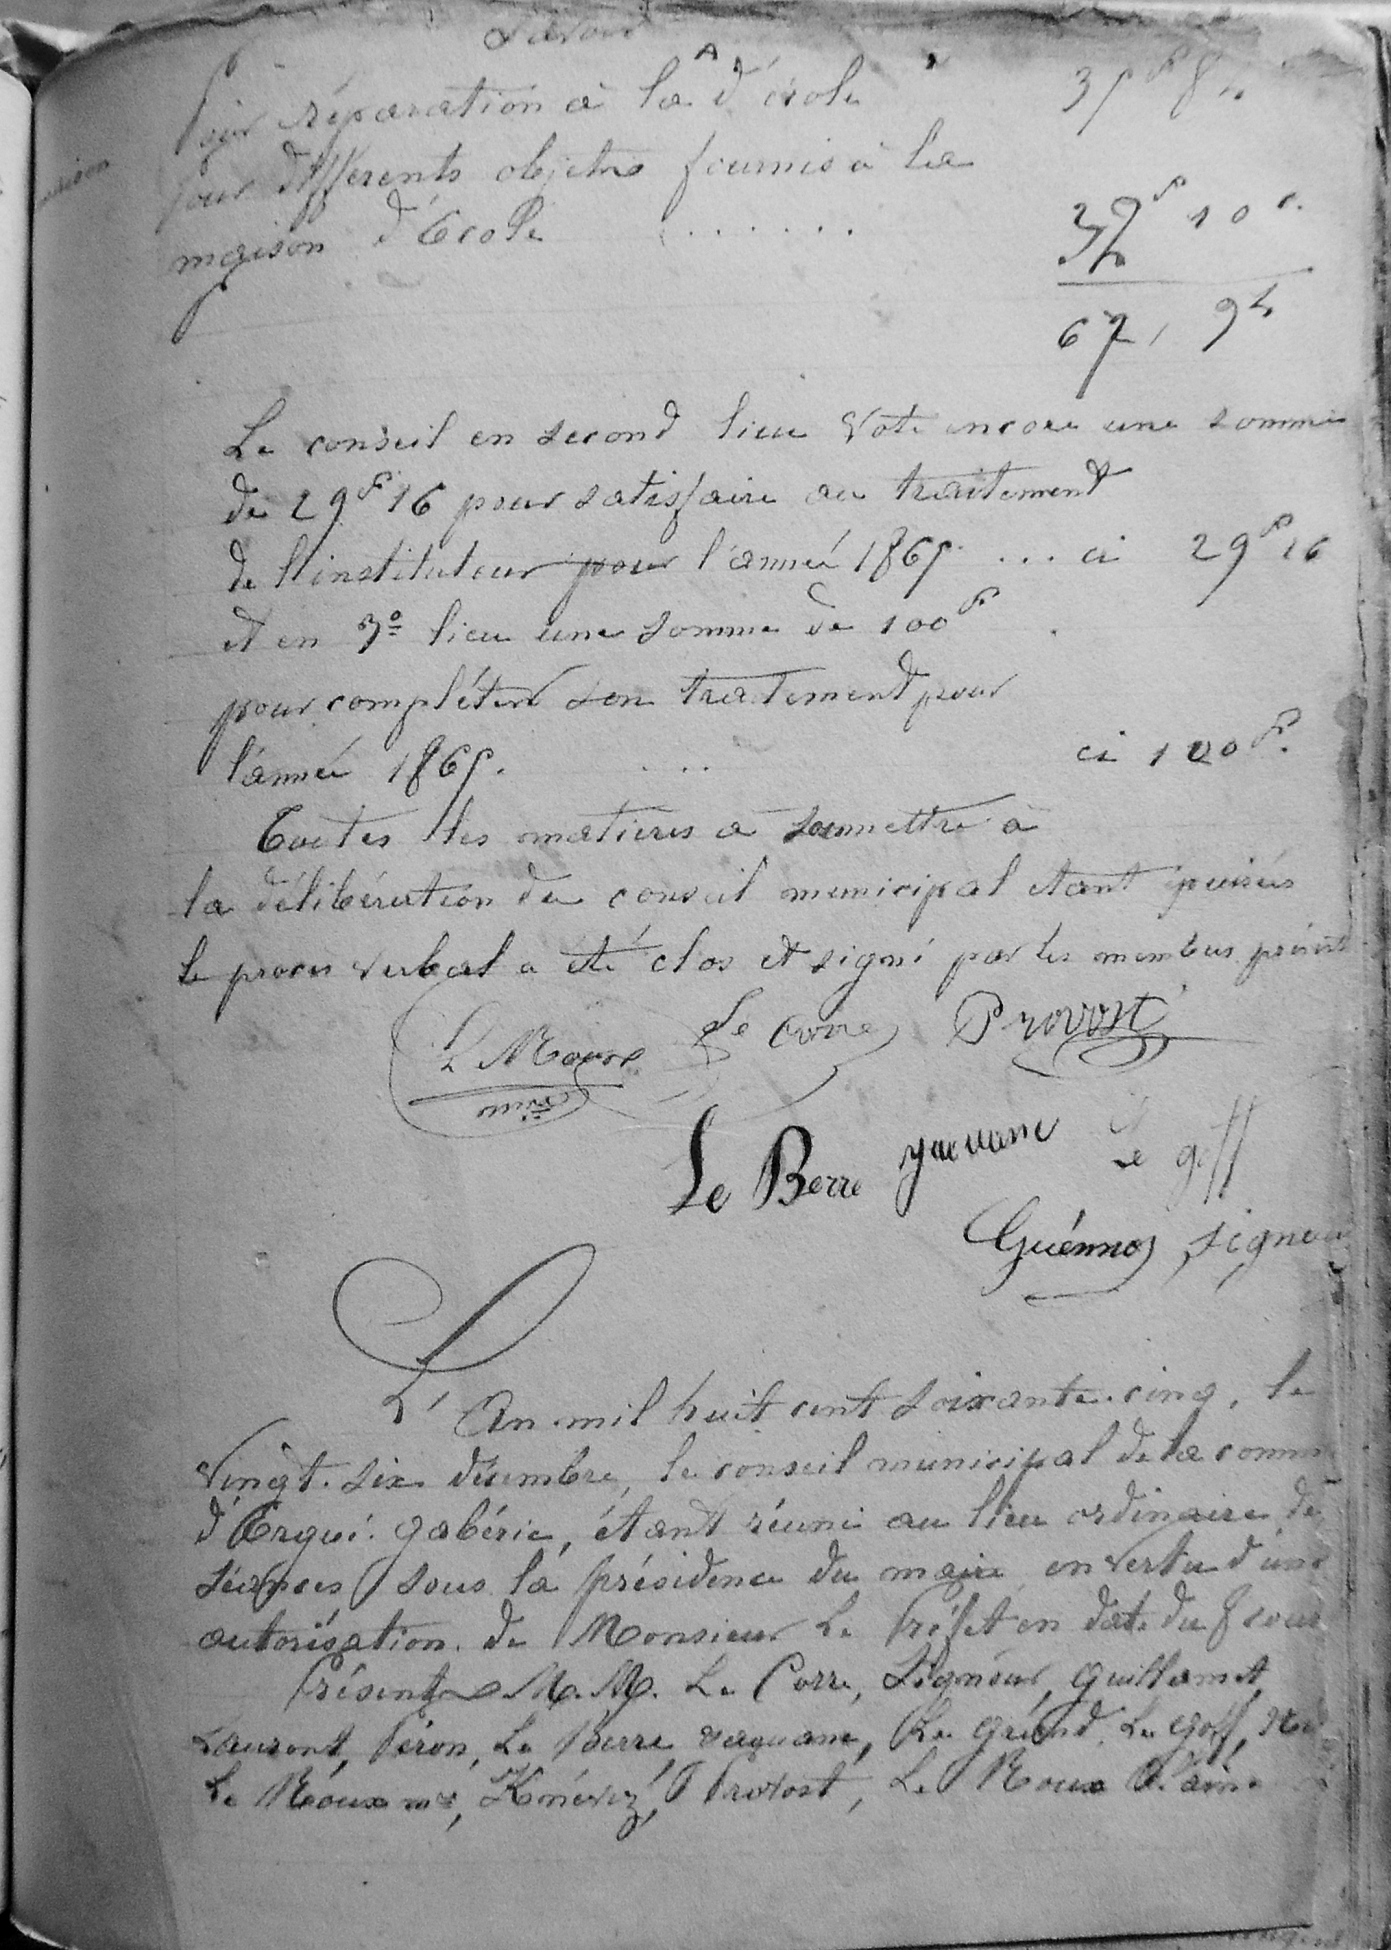 Savoir
Pour réparation à la d'école
maison
pour différents objets fournis à la
maison d'école ......
67, 95
Le conseil en second lieu vote encore une somme
de 29f 16 pour satisfaire au traitement
de l'instituteur pour l'année 1865 ... ci 29f 16
et en 3o lieu une somme de 100f
pour compléter son traitement pour
l'année 1865. ... ci 100f.
Toutes les matières a soumettre à
la délibération du conseil municipal etant épuisées
le proces verbal a été clos et signé par les membres présents
Le Roux Le Corre Provost
maire
Le Berre Jaouanc Le goff
Guénno Signour
L'An mil huit cent soixante-cinq, le
Vingt-six décembre, le conseil municipal de la comm
d'Ergué-gabéric, étant réuni au lieu ordinaire de
séances sous la présidence du maire en vertu d'une
autorisation de Monsieur Le Préfet en date du 8 cour
Présents M.M. Le Corre, Signour, Guillamet,
Laurent, Péron, Le Berre, Le Grand, Le goff,
Le Roux me, Knévez, Provost, Le Roux